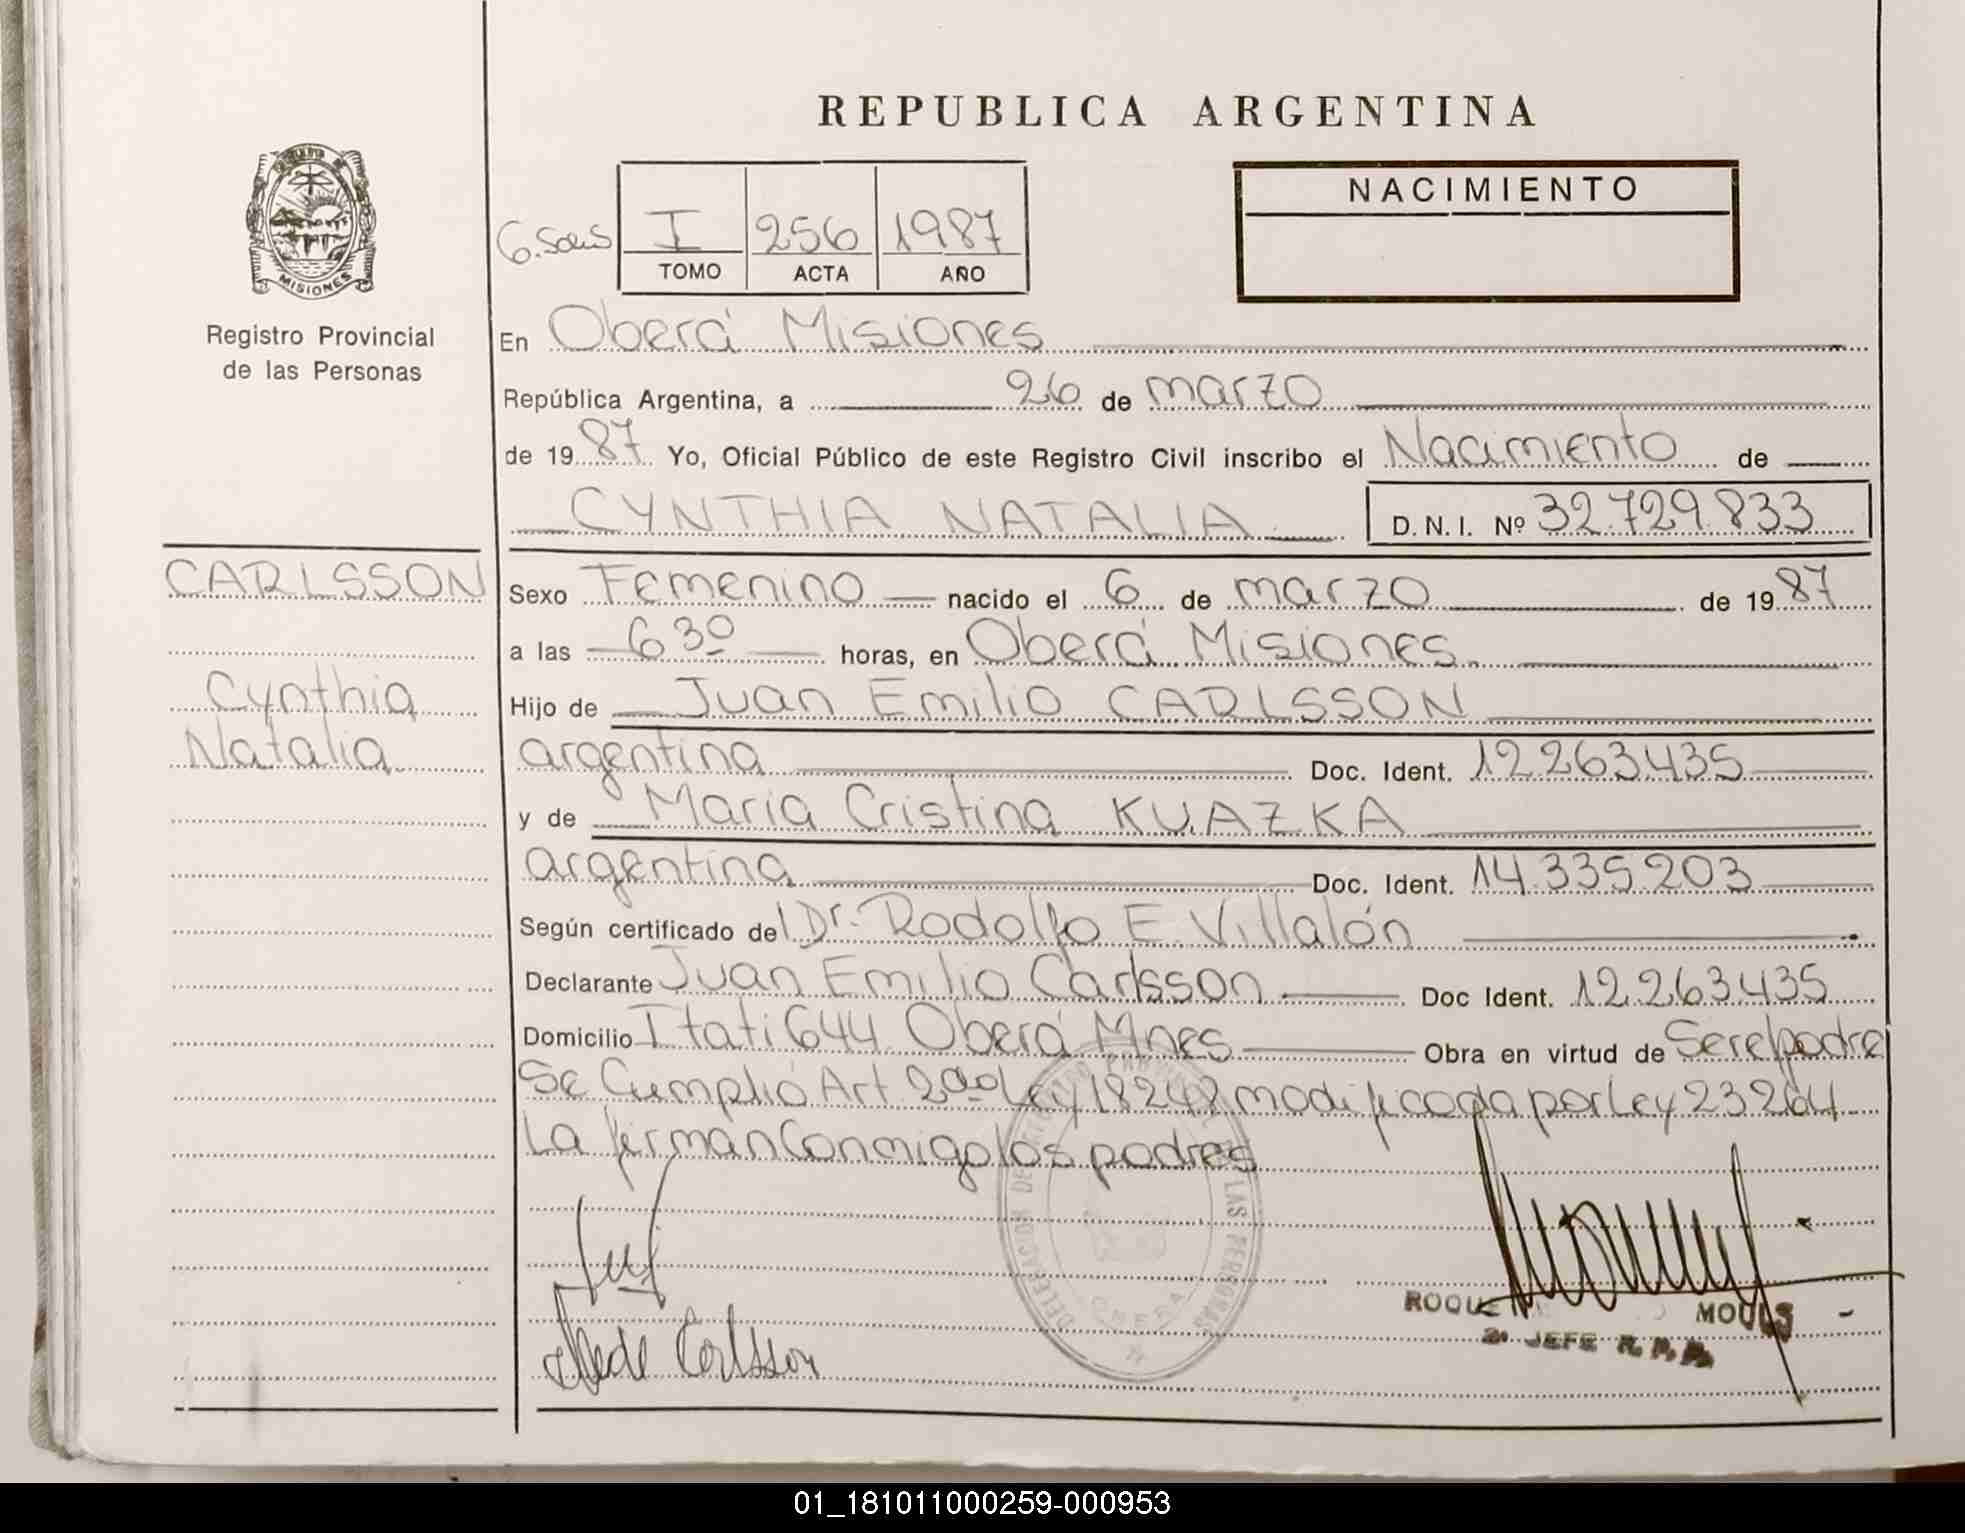 REPUBLICA ARGENTINA
NACIMIENTO
I 256 1987
TOMO ACTA AÑO
MISIONES
Registro Provincial
de las Personas
En Oberá Misiones
República Argentina, a 26 de marzo
de 1987 Yo, Oficial Público de este Registro Civil inscribo el Nacimiento de
CYNTHIA NATALIA D.N.I. Nº 32.729.833
CARLSSON
Cynthia
Natalia
Sexo Femenino nacido el 6 de marzo de 1987
a las 6 30 horas, en Oberá Misiones
Hijo de Juan Emilio CARLSSON
argentina Doc. Ident. 12263435
y de Maria Cristina KUAZKA
argentina Doc. Ident. 14.335.203
Según certificado del Dr. Rodolfo E. Villalón
Declarante Juan Emilio Carlsson Doc Ident. 12.263.435
Domicilio Itati 644 Oberá Mnes Obra en virtud de Ser el padre
Se Cumplió Art 2do Ley 18248 modificada por Ley 23264
La firman Conmigo los padres
DELEGACION DE REGISTRO PROVINCIAL DE LAS PERSONAS
OBERA
Carlsson
ROQUE MOULS
2º JEFE R.P.P.
01_181011000259-000953